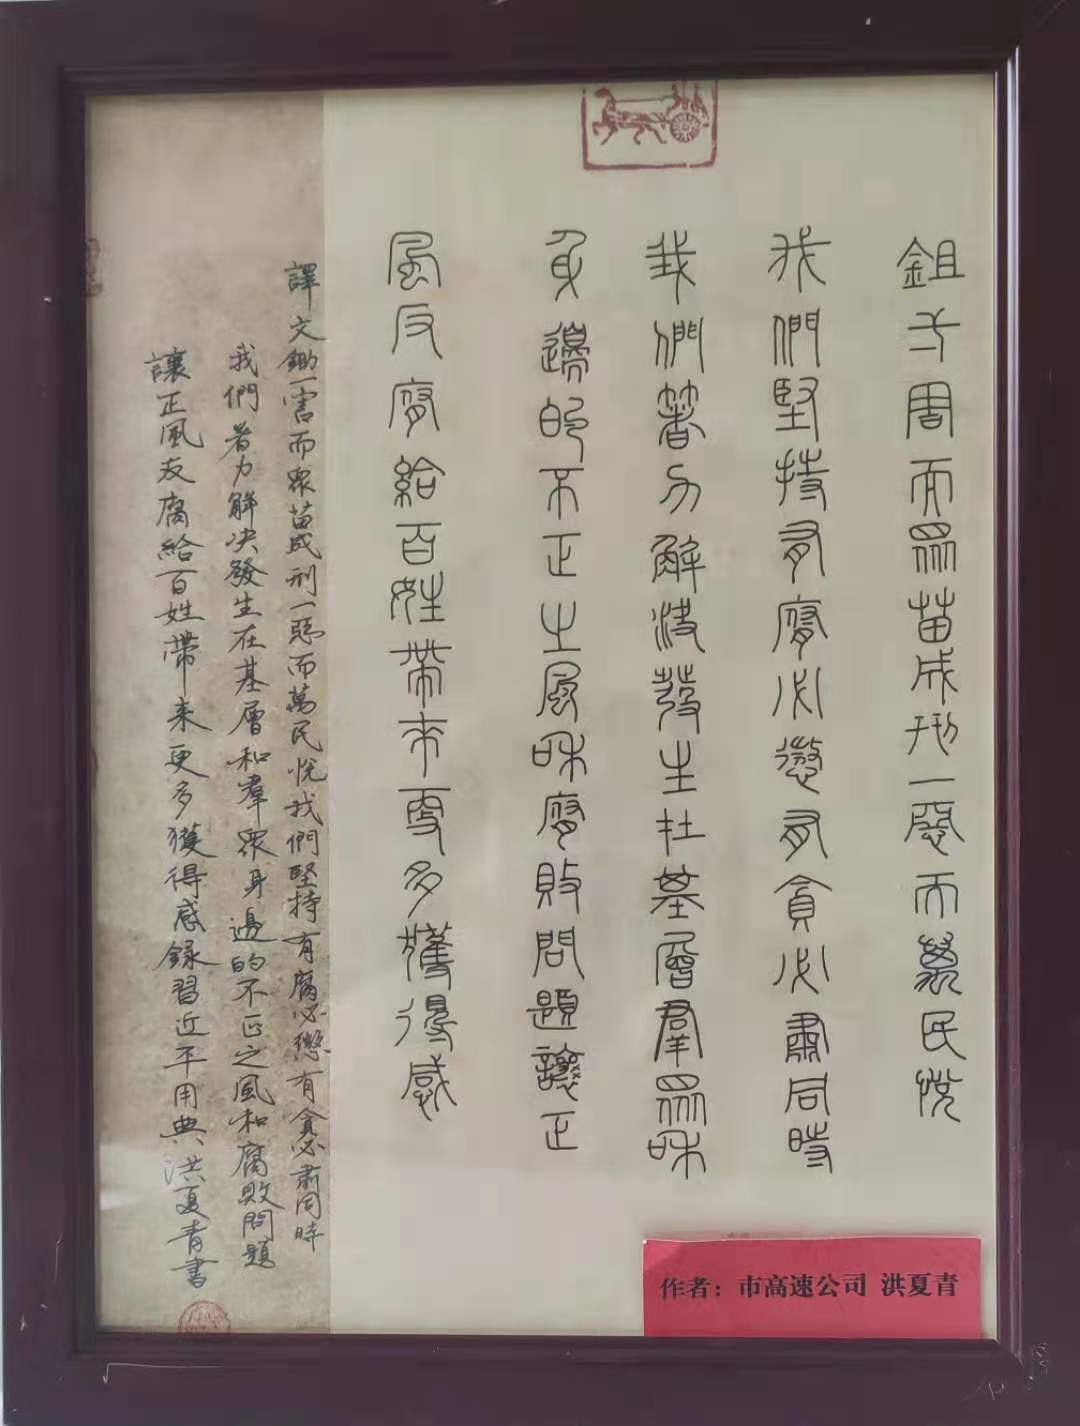 鉏一害而眾苗成刑一惡而萬民悅
我們堅持有腐必懲有貪必肅同時
我們著力解決發生在基層群眾和
身邊的不正之風和腐敗問題讓正
風反腐給百姓帶來更多獲得感
譯文鋤一害而眾苗成刑一惡而萬民悅我們堅持有腐必懲有貪必肅同時
我們着力解決發生在基層和羣眾身邊的不正之風和腐敗問題
讓正風反腐給百姓帶來更多獲得感錄習近平用典洪夏青書
作者：市高速公司 洪夏青